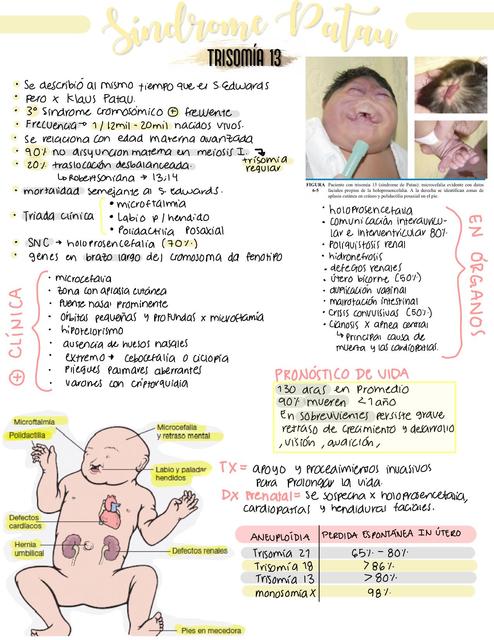 Síndrome Patau
TRISOMÍA 13
• Se describió al mismo tiempo que el S. Edwards
• Pero x Klaus Patau.
• 3° Síndrome cromosómico ⊕ frecuente
• Frecuencia → 1/12mil - 20mil nacidos vivos.
• Se relaciona con edad materna avanzada
• 90% no disyunción materna en meiosis I. → trisomía regular
• 20% traslocación desbalanceada.
↳ Robertsoniana → 13;14
• mortalidad semejante al S. edwards.
• Triada clínica
• microftalmia
• Labio p/hendido
• Polidactilia Posaxial
• SNC → holoprosencefalia (70%)
• genes en brazo largo del cromosoma da fenotipo
FIGURA 6-5 Paciente con trisomía 13 (síndrome de Patau): microcefalia evidente con datos
faciales propios de la holoprosencefalia. A la derecha se identifican zonas de
aplasia cutánea en cráneo y polidactilia posaxial en el pie.
⊕ CLÍNICA
• microcefalia
• zona con aplasia cutánea
• Puente nasal prominente
• órbitas pequeñas y profundas x microftalmia
• hipotelorismo
• ausencia de huesos nasales
• extremo → cebocefalia o ciclopia
• Pliegues palmares aberrantes
• varones con criptorquidia
EN ÓRGANOS
• holoprosencefalia
• comunicación interauricular e interventricular 80%
• Poliquistosis renal
• hidronefrosis
• defectos renales
• útero bicorne (50%)
• duplicación vaginal
• malrotación intestinal
• Crisis convulsivas (50%)
• Cianosis x apnea central
↳ Principal causa de
muerte y las cardiopatías.
PRONÓSTICO DE VIDA
130 días en Promedio
90% mueren <1 año
En sobrevivientes persiste grave
retraso de crecimiento y desarrollo
, visión, audición,
Microftalmia
Polidactilia
Microcefalia
y retraso mental
Labio y paladar
hendidos
Defectos
cardíacos
Hernia
umbilical
Defectos renales
Pies en mecedora
TX = apoyo y procedimientos invasivos
para prolongar la vida.
Dx Prenatal = Se sospecha x holoprosencefalia,
cardiopatías y hendiduras faciales.
ANEUPLOIDÍA PERDIDA ESPONTÁNEA IN ÚTERO
Trisomía 21 65% - 80%
Trisomía 18 >86%
Trisomía 13 >80%
monosomía X 98%